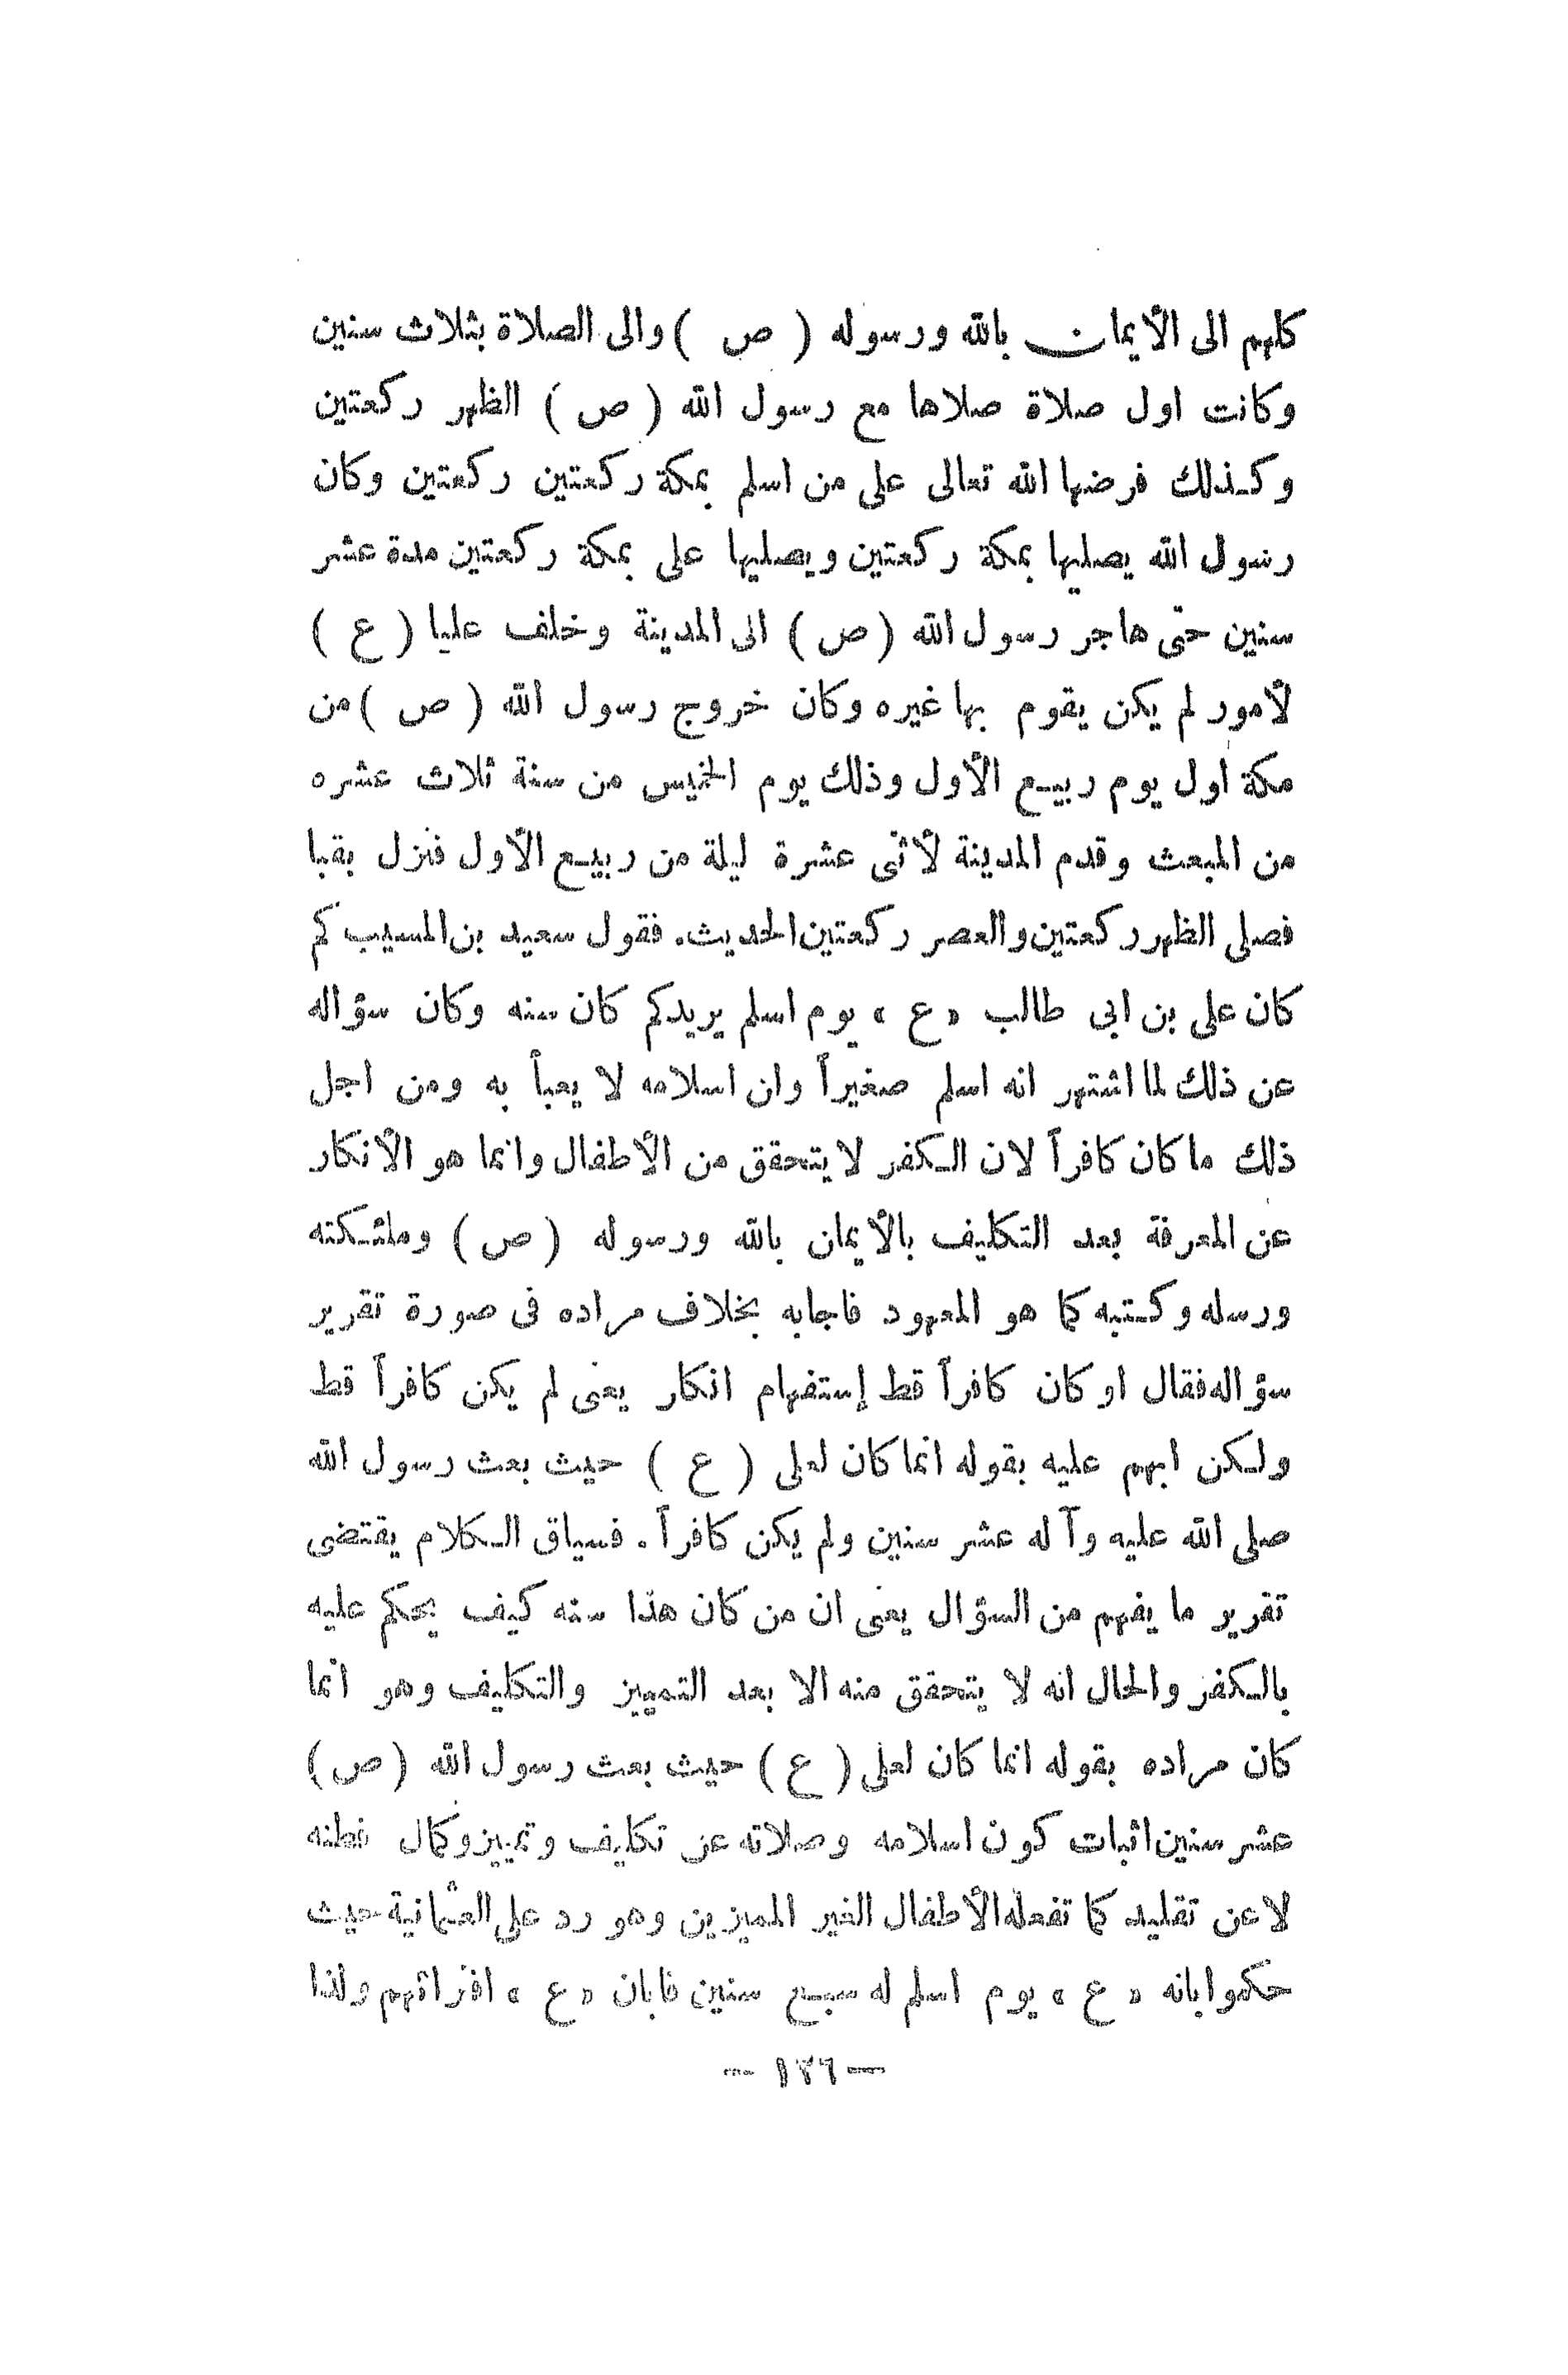 كلهم الى الأيمان بالله ورسوله ( ص ) والى الصلاة بثلاث سنين
وكانت اول صلاة صلاها مع رسول الله ( ص ) الظهر ركعتين
وكـذلك فرضها الله تعالى على من اسلم بمكة ركعتين ركعتين وكان
رسول الله يصليها بمكة ركعتين ويصليها على بمكة ركعتين مدة عشر
سنين حتى هاجر رسول الله ( ص ) الى المدينة وخلف عليا ( ع )
لأمور لم يكن يقوم بها غيره وكان خروج رسول الله ( ص ) من
مكة اول يوم ربيـع الأول وذلك يوم الخميس من سنة ثلاث عشره
من المبعث وقدم المدينة لأثنى عشرة ليلة من ربيـع الأول فنزل بقبا
فصلى الظهر ركعتين والعصر ركعتين الحديث. فقول سعيد بن المسيب كم
كان على بن ابى طالب « ع » يوم اسلم يريدكم كان سنه وكان سؤاله
عن ذلك لما اشتهر انه اسلم صغيراً وان اسلامه لا يعبأ به ومن اجل
ذلك ما كان كافراً لان الـكفر لا يتحقق من الأطفال وانما هو الأنكار
عن المعرفة بعد التكليف بالأيمان بالله ورسوله ( ص ) وملئـكته
ورسله وكـتبه كما هو المعهود فاجابه بخلاف مراده فى صورة تقرير
سؤاله فقال او كان كافراً قط إستفهام انكار يعنى لم يكن كافراً قط
ولـكن ابهم عليه بقوله انما كان لعلى ( ع ) حيث بعث رسول الله
صلى الله عليه وآله عشر سنين ولم يكن كافراً . فسياق الـكلام يقتضى
تقرير ما يفهم من السؤال يعنى ان من كان هذا سنه كيف يحكم عليه
بالـكفر والحال انه لا يتحقق منه الا بعد التمييز والتكليف وهو انما
كان مراده بقوله انما كان لعلى ( ع ) حيث بعث رسول الله ( ص )
عشر سنين اثبات كون اسلامه وصلاته عن تكليف وتمييز وكمال فطنه
لا عن تقليد كما تفعله الأطفال الغير المميزين وهو رد على العثمانية حيث
حكموا بانه « ع » يوم اسلم له سبـع سنين فابان « ع » افترائهم ولذا
— ١٢٦ —